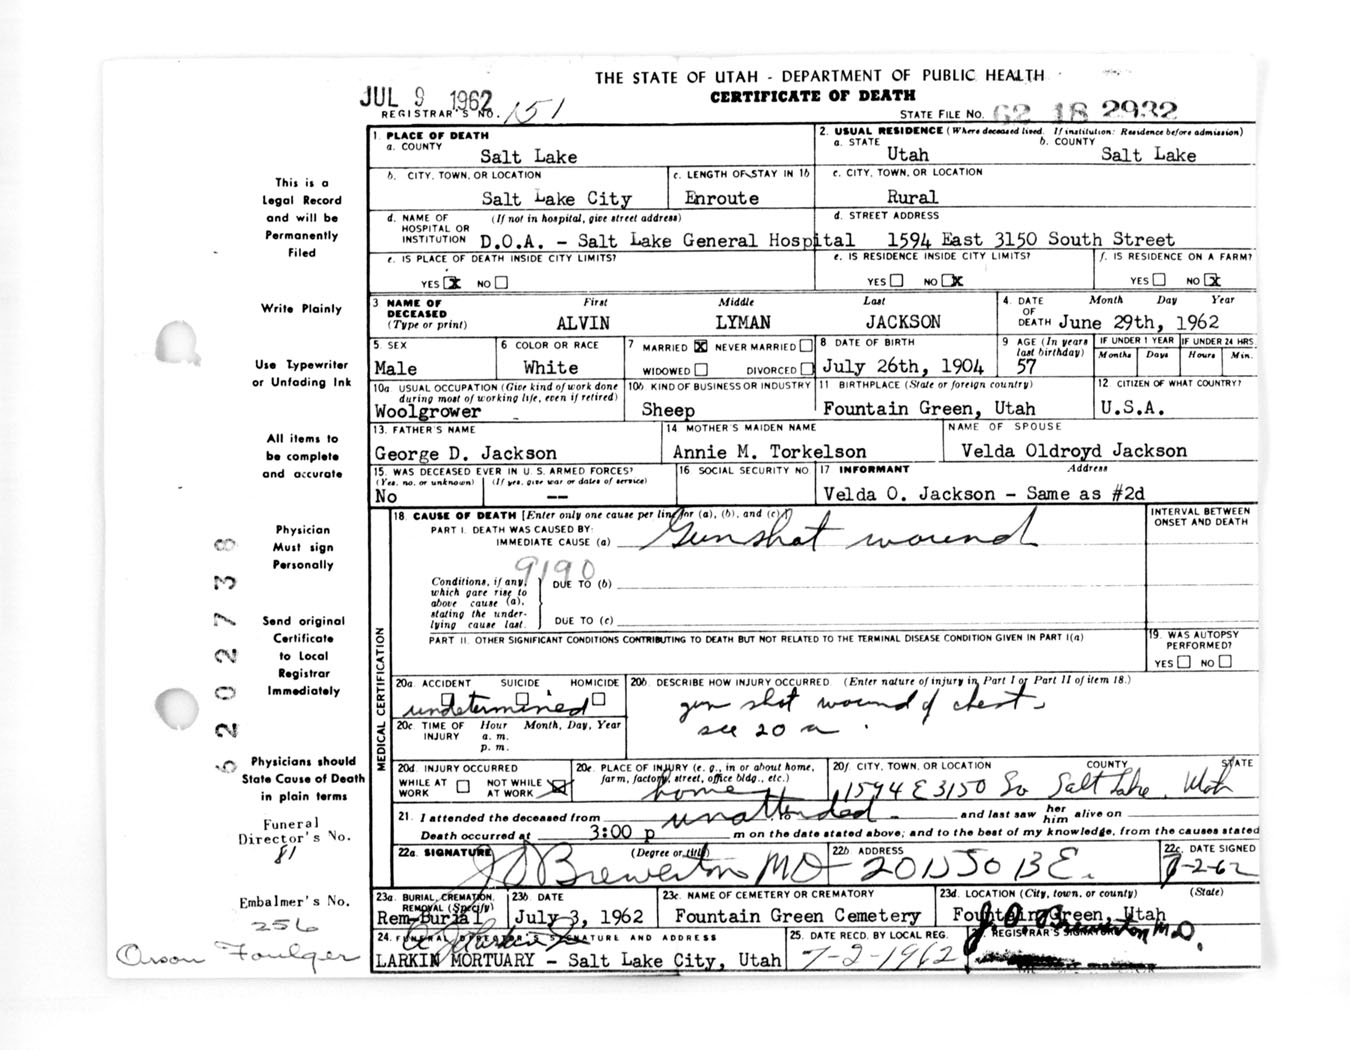 THE STATE OF UTAH - DEPARTMENT OF PUBLIC HEALTH
CERTIFICATE OF DEATH
JUL 9 1962
REGISTRAR'S NO. 151
STATE FILE NO. 62 18 2932
This is a
Legal Record
and will be
Permanently
Filed
Write Plainly
Use Typewriter
or Unfading Ink
All items to
be complete
and accurate
Physician
Must sign
Personally
Send original
Certificate
to Local
Registrar
Immediately
Physicians should
State Cause of Death
in plain terms
Funeral
Director's No.
81
Embalmer's No.
256
Orson Foulger
5 2 0 2 7 3 8
1. PLACE OF DEATH
a. COUNTY
Salt Lake
2. USUAL RESIDENCE (Where deceased lived. If institution: Residence before admission)
a. STATE Utah
b. COUNTY Salt Lake
b. CITY, TOWN, OR LOCATION
Salt Lake City
c. LENGTH OF STAY IN 1b
Enroute
c. CITY, TOWN, OR LOCATION
Rural
d. NAME OF HOSPITAL OR INSTITUTION (If not in hospital, give street address)
D.O.A. - Salt Lake General Hospital
d. STREET ADDRESS
1594 East 3150 South Street
e. IS PLACE OF DEATH INSIDE CITY LIMITS?
YES X NO
e. IS RESIDENCE INSIDE CITY LIMITS?
YES NO X
f. IS RESIDENCE ON A FARM?
YES NO X
3 NAME OF DECEASED (Type or print)
First Middle Last
ALVIN LYMAN JACKSON
4. DATE OF DEATH Month Day Year
June 29th, 1962
5. SEX
Male
6 COLOR OR RACE
White
7 MARRIED X NEVER MARRIED
WIDOWED DIVORCED
8 DATE OF BIRTH
July 26th, 1904
9 AGE (In years last birthday)
57
IF UNDER 1 YEAR
Months Days
IF UNDER 24 HRS.
Hours Min.
10a USUAL OCCUPATION (Give kind of work done during most of working life, even if retired)
Woolgrower
10b KIND OF BUSINESS OR INDUSTRY
Sheep
11 BIRTHPLACE (State or foreign country)
Fountain Green, Utah
12 CITIZEN OF WHAT COUNTRY?
U.S.A.
13. FATHER'S NAME
George D. Jackson
14 MOTHER'S MAIDEN NAME
Annie M. Torkelson
NAME OF SPOUSE
Velda Oldroyd Jackson
15. WAS DECEASED EVER IN U. S. ARMED FORCES?
(Yes, no, or unknown) (If yes, give war or dates of service)
No --
16 SOCIAL SECURITY NO
17 INFORMANT Address
Velda O. Jackson - Same as #2d
MEDICAL CERTIFICATION
18. CAUSE OF DEATH [Enter only one cause per line for (a), (b), and (c).]
PART I. DEATH WAS CAUSED BY:
IMMEDIATE CAUSE (a) Gunshot wound
INTERVAL BETWEEN ONSET AND DEATH
9190
Conditions, if any, which gave rise to above cause (a), stating the underlying cause last.
DUE TO (b)
DUE TO (c)
PART II. OTHER SIGNIFICANT CONDITIONS CONTRIBUTING TO DEATH BUT NOT RELATED TO THE TERMINAL DISEASE CONDITION GIVEN IN PART I(a)
19. WAS AUTOPSY PERFORMED?
YES NO
20a. ACCIDENT SUICIDE HOMICIDE
undetermined
20b. DESCRIBE HOW INJURY OCCURRED. (Enter nature of injury in Part I or Part II of item 18.)
gun shot wound of chest.
see 20 a.
20c. TIME OF INJURY Hour Month, Day, Year
a. m.
p. m.
20d. INJURY OCCURRED
WHILE AT WORK NOT WHILE AT WORK X
20e. PLACE OF INJURY (e. g., in or about home, farm, factory, street, office bldg., etc.)
home
20f. CITY, TOWN, OR LOCATION COUNTY STATE
1594 E 3150 So Salt Lake, Utah
21. I attended the deceased from unattended - and last saw her him alive on
Death occurred at 3:00 p m on the date stated above; and to the best of my knowledge, from the causes stated
22a. SIGNATURE (Degree or title)
J O Brewerton MD
22b ADDRESS
22c. DATE SIGNED
7-2-62
23a. BURIAL, CREMATION, REMOVAL (Specify)
Rem-Burial
23b DATE
July 3, 1962
23c. NAME OF CEMETERY OR CREMATORY
Fountain Green Cemetery
23d. LOCATION (City, town, or county) (State)
Fountain Green, Utah
24. FUNERAL DIRECTOR'S SIGNATURE AND ADDRESS
LARKIN MORTUARY - Salt Lake City, Utah
25. DATE RECD. BY LOCAL REG.
7-2-1962
REGISTRAR'S SIGNATURE
J. O. Brewerton M.D.